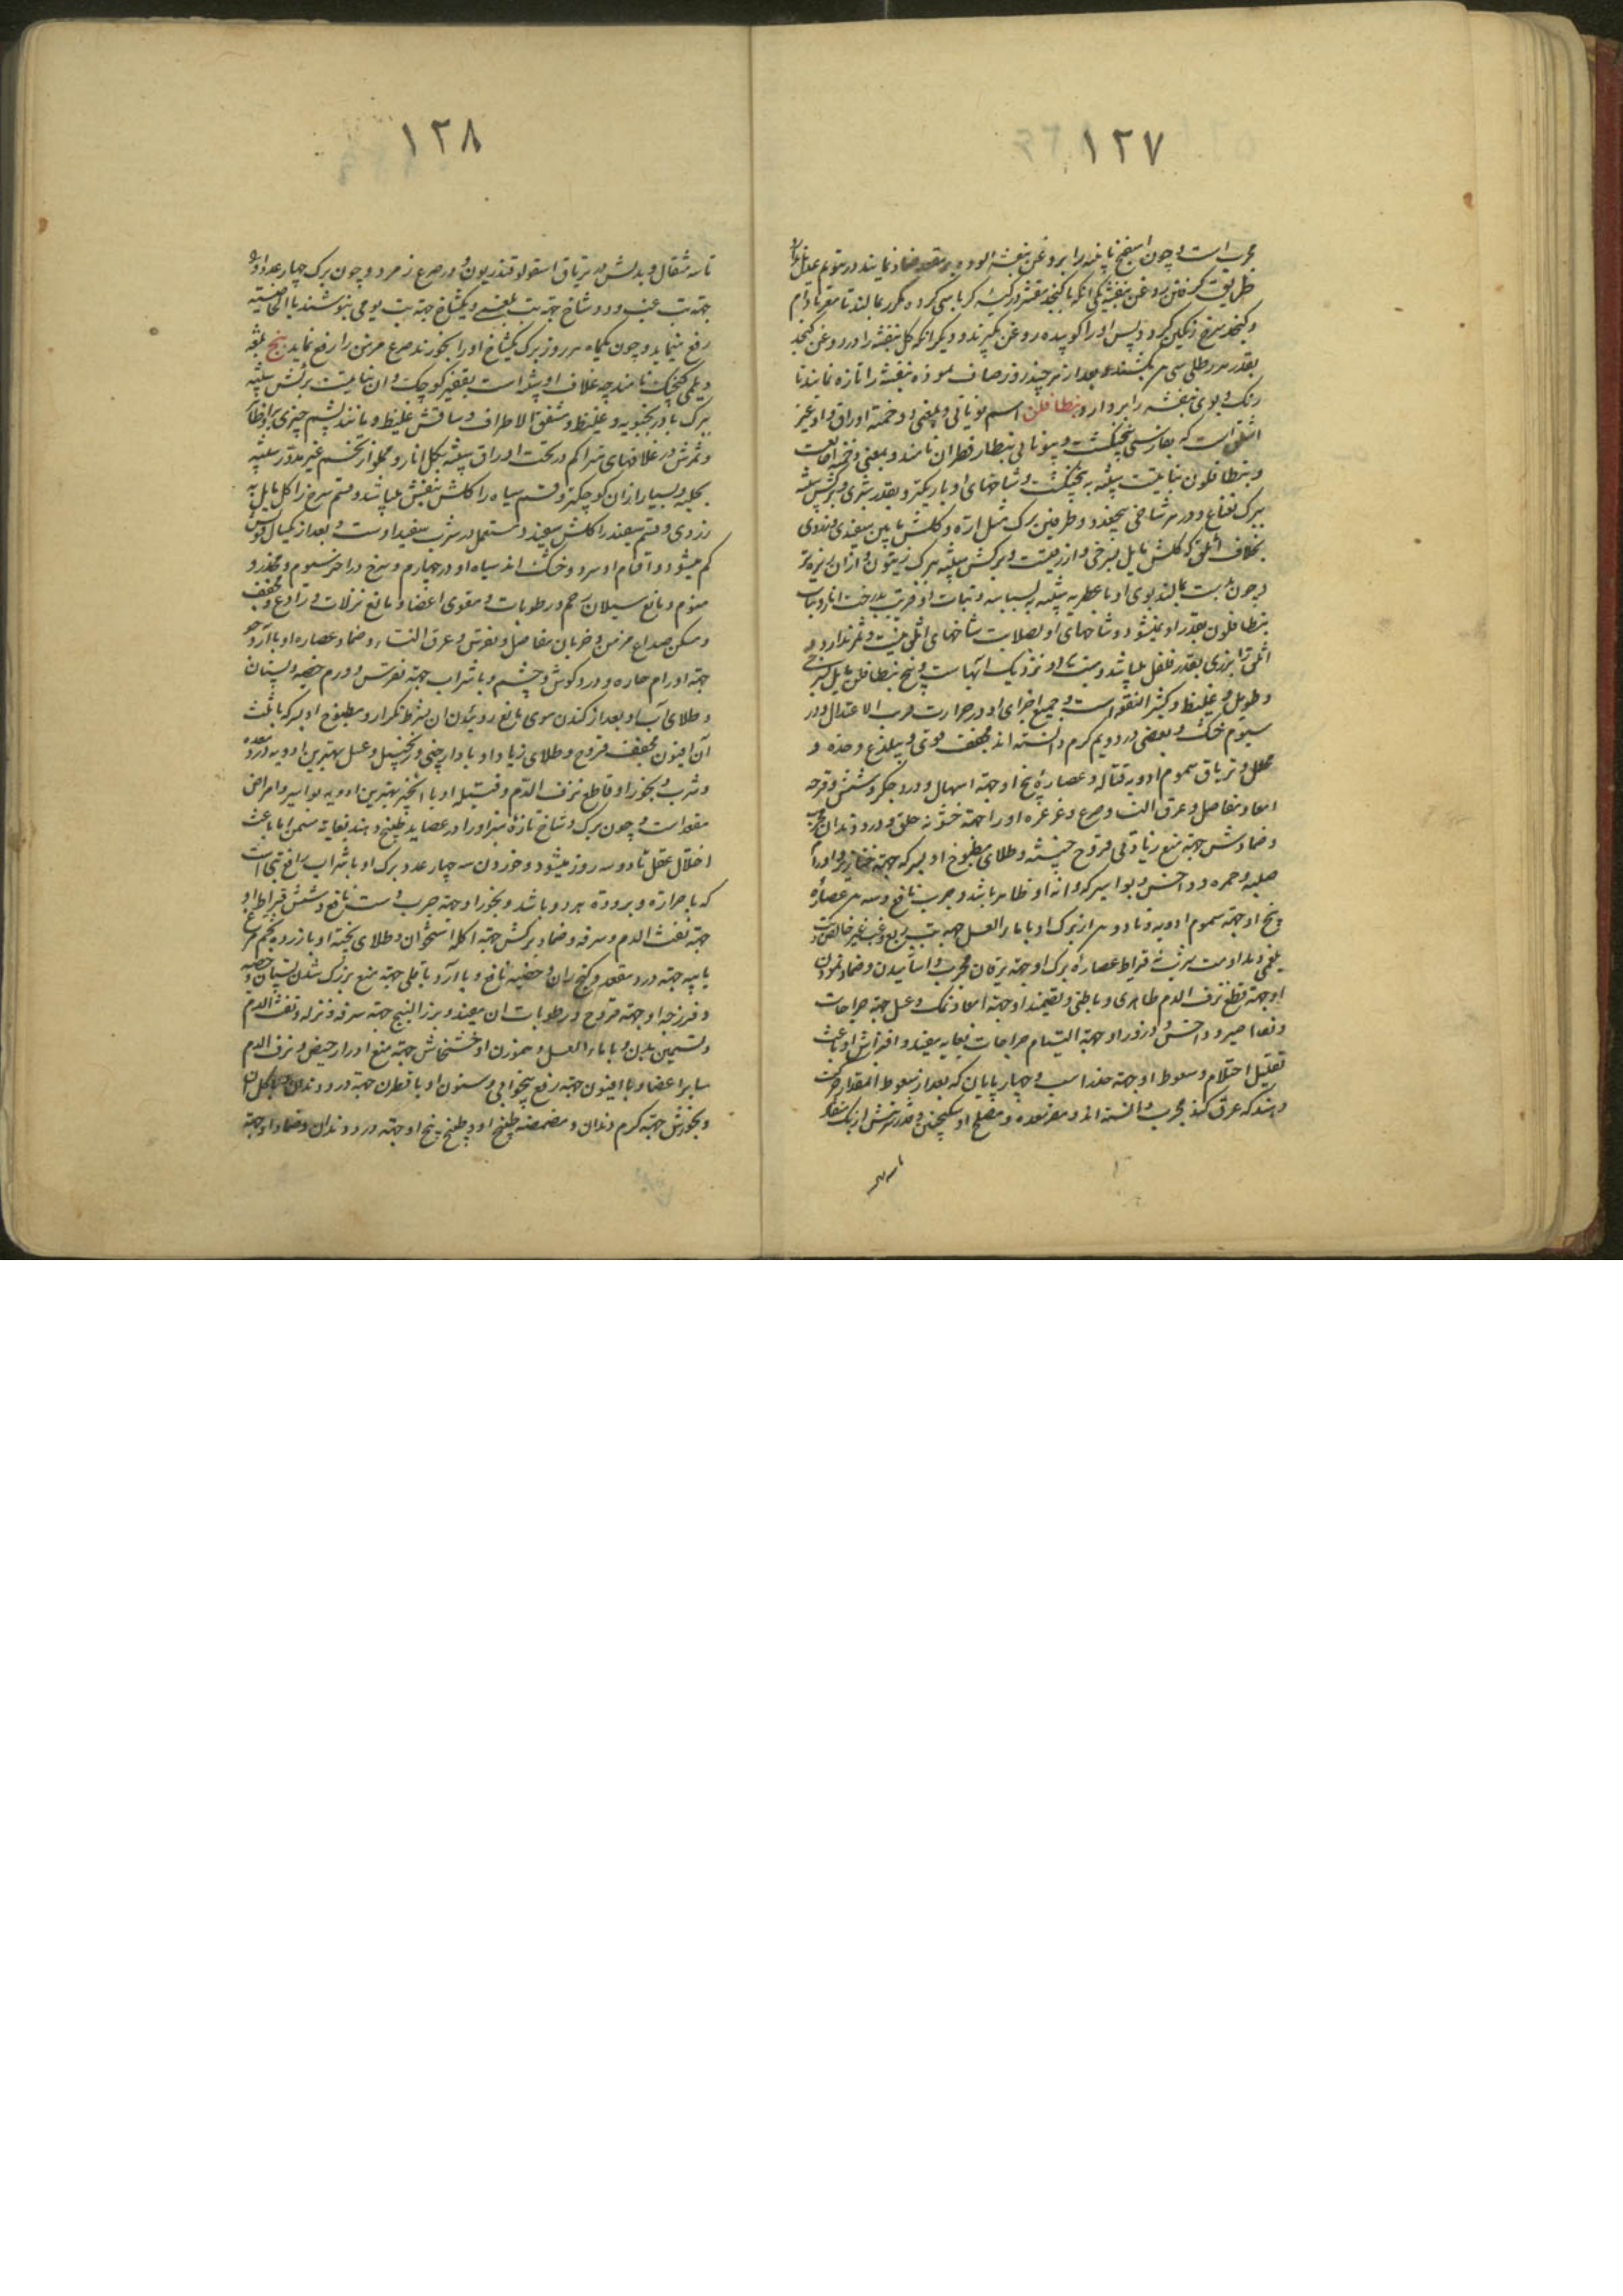 ۱۲۷
مجرب است و چون اسفنج پاره را بروغن بنفشه آلوده بر مقعد ضماد نمایند در تنویم عدیل ندارد
طریق گرفتن روغن بنفشه یکی آنکه با کنجد مقشر در کیسه کرباسی کرده مکرر بمالند تا مقر بادام
و کنجد سرخ رنگین گردد پس او را کوبیده روغن بگیرند و دیگر آنکه گل بنفشه را در روغن کنجد
بقدر هر رطلی سی بکشند و بعد از هر چند روز صاف نموده بنفشه را تازه نمایند تا
رنگ و بوی بنفشه را بردارد بنطافلن اسم یونانی و بمعنی ذو خمسة اوراق و او غیر
اثلق است که بفارسی پنجنکشت و بیونانی بنطار قطران نامند و بمعنی ذو خمسه اصابعست
و بنطافلون نباتیست شبیه به پنجنکشت و شاخهای او باریکتر و بقدر شبری و برکش شبیه
ببرک نعناع و در هر شاخی پنج عدد و طرفین برک مثل اره و کلش مابین سفیدی و زردی
بخلاف اثلق که کلش مایل بسرخی و ازرقیست و برکش شبیه ببرک زیتون و از آن ریزه تر
و چون بدست بمالند بوی او با عطریه شبیه به بسباسه و نبات او قریب بدرخت انار و نبات
بنطافلون بقدر او نمیشود و شاخهای او بصلابت شاخهای اثلق نیست و ثمر ندارد و
اثلق را بزری بقدر فلفل میباشد و منبت او نزدیک آبهاست و بیخ بنطافلن مایل بسرخی
و طویل و غلیظ و کثیر النفع است و جمیع اجزای او در حرارت قریب الاعتدال و در
سیوم خشک و بعضی در دویم گرم دانسته اند مجفف قوی و بی لذع و حده و
محلل و تریاق سموم ادویه قتاله و عصاره بیخ او جهته اسهال و درد جگر و شش و قرحه
امعا و مفاصل و عرق النسا و صرع و غرغره او را جهته خشونه حلق و درد دندان مجرب
و ضمادش جهته منع زیادتی قروح خبیثه و طلای مطبوخ او بسرکه جهته خنازیر و اورام
صلبه و حمره و داخس و بواسیر که دانه او ظاهر باشد و جرب نافع و سه درهم عصاره
بیخ او جهته سموم ادویه و تا دو درهم از برک او با ماء العسل جهته تب ربع و غب غیر خالص و تب
بلغمی و مداومت شرب قیراط عصاره برک او جهته یرقان مجرب و آشامیدن و ضماد نمودن
او جهته قطع نزف الدم ظاهری و باطنی و تضمید او جهته امعا و نمک و عسل جهته جراحات
و نواصیر و داخس و ذرور او جهته التیام جراحات بغایه مفید و افتراش او باعث
تقلیل احتلام و سعوط او جهته اسب و چهارپایان که بعد از سعوط آنمقدار حرکت
دهند که عرق کند مجرب دانسته اند و مضر معده و مصلح او سکنجبین و قدر شربتش از یک مثقال
تا سه
۱۲۸
تا سه مثقال و بدلش در تریاق اسقولوقندریون و در صرع زمرد و چون برک چهار عدد او را
جهته تب غب و دو شاخ جهته تب بلغمی و یکشاخ جهته تب یومی بنوشند بالخاصیته
رفع مینماید و چون یکماه هر روز برک یکشاخ او را بخورند صرع مزمن را رفع نماید بنج بلغه
دیلمی کنچک نامند چه غلاف او شبیه است بقفیز کوچک و آن نباتیست برکش شبیه
ببرک بادرنجبویه و غلیظ و مشقق الاطراف و ساقش غلیظ و مانند پشم چیزی بر او ظاهر
و ثمرش در غلافهای متراکم در تحت اوراق شبیه بکل انار و مملو از تخم غیر مدور شبیه
بحلبه و بسیار از آن کوچکتر و قسم سیاه را کلش بنفش میباشد و قسم سرخ را کل مایل به
زردی و قسم سفید را کلش سفید و مستعمل در شرب سفید اوست و بعد از یکسال قوتش
کم میشود و اقسام او سرد و خشک اند سیاه او در چهارم و سرخ در آخر سیوم و مخدر و
منوم و مانع سیلان رحم و رطوبات و مقوی اعضا و مانع نزلات و رادع و مجفف
و مسکن صداع مزمن و ضربان مفاصل و نقرس و عرق النساء و ضماد عصاره او با آرد جو
جهته اورام حاره و درد گوش و چشم و با شراب جهته نقرس و ورم خصیه و پستان
و طلای آب او بعد از کندن موی مانع روئیدن آن بشرط تکرار و مطبوخ او بسرکه با ثلث
آن افیون مجفف قروح و طلای زیاد او با دارچینی و زنجبیل و عسل بهترین ادویه درد معده
و شرب و بخور او قاطع نزف الدم و فتیله او با انجیر بهترین ادویه بواسیر و امراض
مقعد است و چون برک و شاخ تازه سبز او را در عصاید طبخ دهند بغایة مسمن اما باعث
اختلال عقل تا دو سه روز میشود و خوردن سه چهار عدد برک او با شراب رافع تبهائی است
که با حرارة و برودة هر دو باشد و بخور او جهته جرب دست نافع و شش قیراط او
جهته نفث الدم و سرفه و ضماد برکش جهته اکله استخوان و طلای پخته او با زرده تخم مرغ
یا پیه جهته درد مقعد و کنج ران و خصیه نافع و با آرد باقلی جهته منع بزرگ شدن پستان و خصیه
و فرزجه او جهته قروح و رطوبات آن مفید و بزر البنج جهته سرفه و نزله و نفث الدم
و تسمین بدن و با ماء العسل و هموزن او خشخاش جهته منع ادرار حیض و نزف الدم
سایر اعضا و با افیون جهته رفع بیخوابی و سنون او با قطران جهته درد دندان
و بخورش جهته کرم دندان و مضمضه طبیخ او و طبیخ بیخ او جهته درد دندان و ضماد او جهته